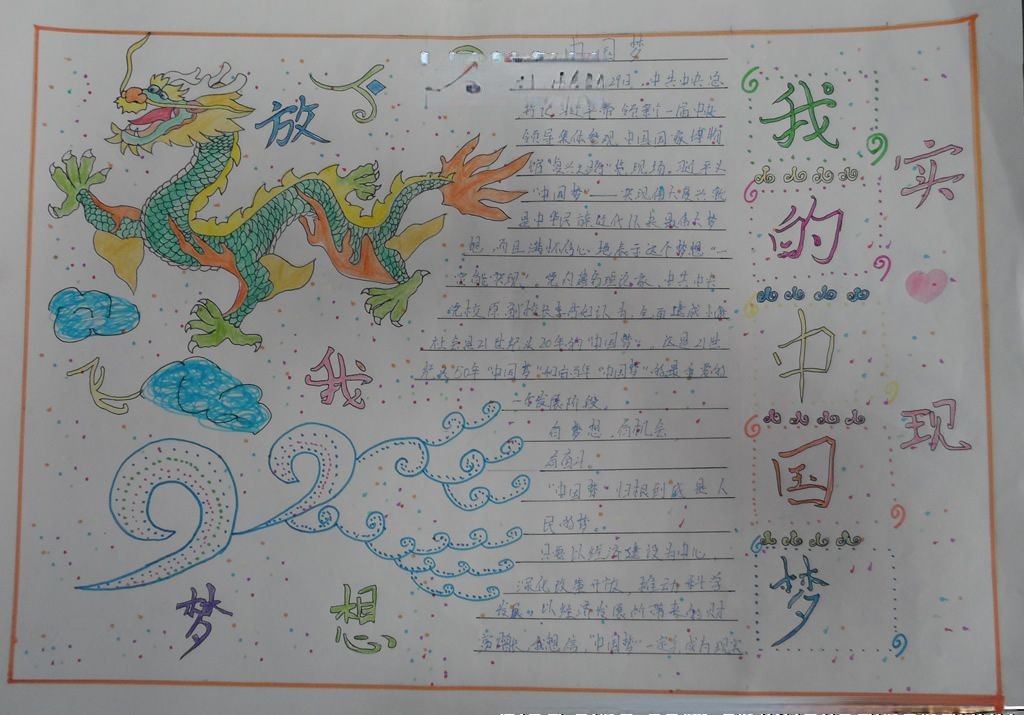 放飞
我
梦想
中国梦
29日，中共中央总
书记习近平带领新一届中央
领导集体参观中国国家博物
馆“复兴之路”展现场。习近平
“中国梦”——实现伟大复兴就
是中华民族近代以来最伟大梦
想，而且满怀信心地表示这个梦想“一
定能实现”。党内著名理论家、中共中央
党校原副校长 认为，全面建成小康
社会是21世纪头20年的“中国梦”，
50年“中国梦” “中国梦”
一个发展阶段。
有梦想，有机会，
有奋斗。
“中国梦”归根到底是人
民的梦。
只要以经济建设为中心，
深化改革开放，推动科学
发展。以经济发展所带来的财
我想信，“中国梦”一定会成为现实
我的中国梦
实现